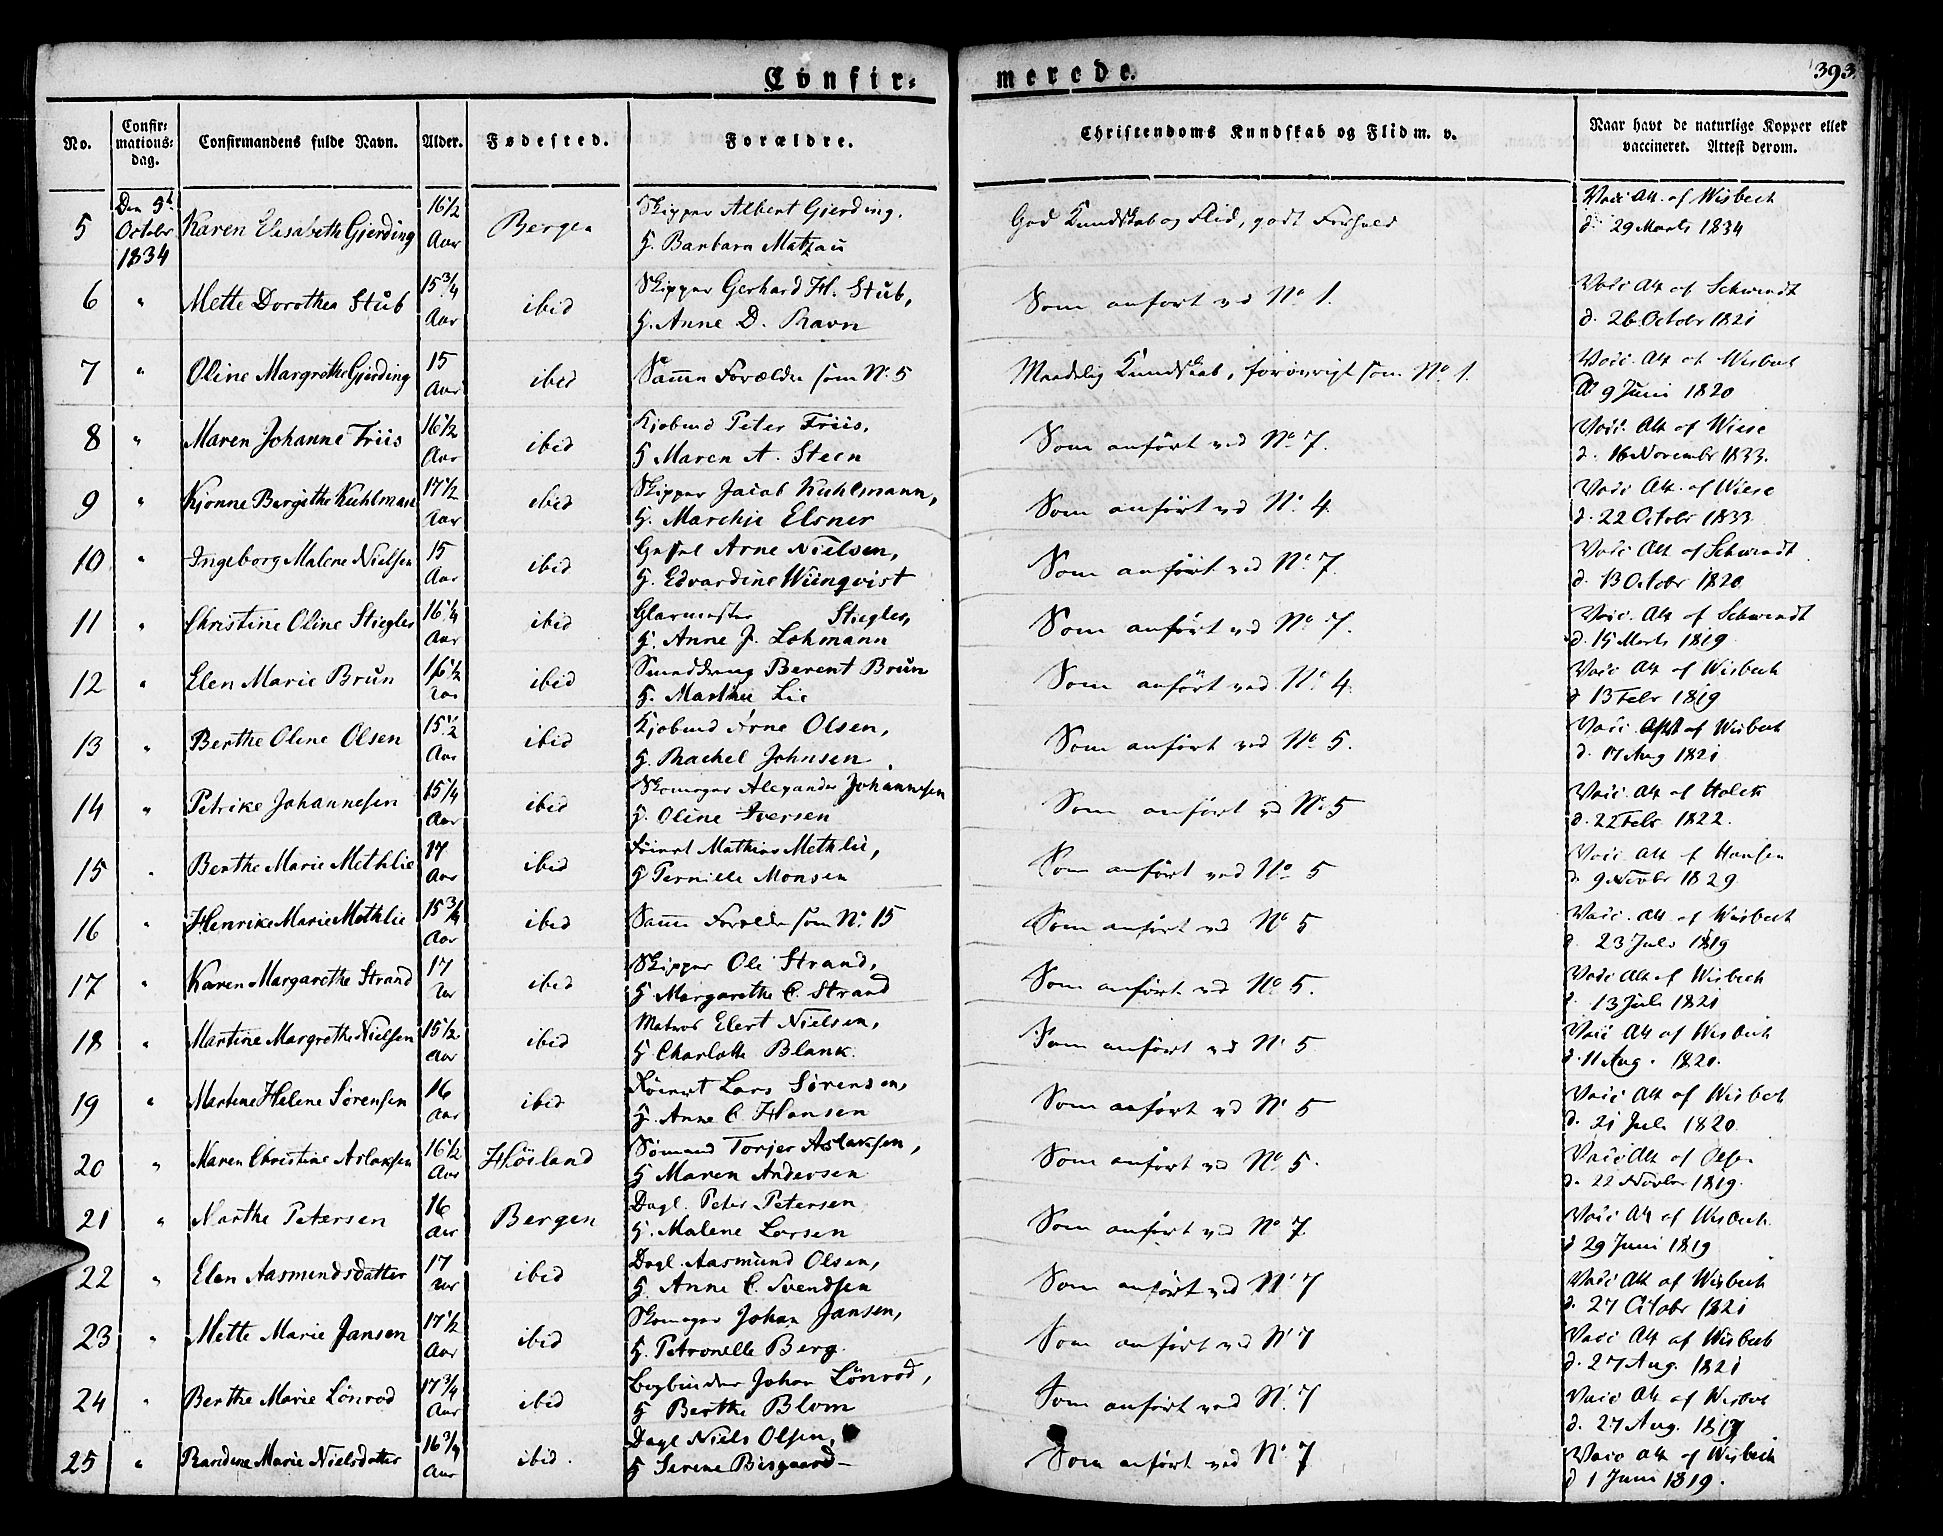 Confir- merede.
393.
No.
Confir-
mations-
dag.
Confirmandens fulde Navn.
Alder.
Fødested.
Forældre.
Christendoms Kundskab og Flid m. v.
Naar havt de naturlige Kopper eller
vaccineret. Attest derom.
Den 5t
16 1/2
Skipper Albert Gierding,
Vacc. Att. af Wisbech
5 Octobr Karen Elisabeth Gierding Aar Bergen God Kundskab og Flid, godt Forhold
1834 H. Barbara Matzau d. 29 Marts 1834
15 3/4 Skipper Gerhard H. Stub, Vacc. Att. af Schwindt
6 " Mette Dorothea Stub Aar ibid Som anført ved No 1.
H. Anne D. Ravn d. 26 Octobr 1821
15 Vacc. Att. af Wisbech
7 " Oline Margrethe Gierding Aar ibid Samme Forældre som No 5 Maadelig Kundskab, forøvrigt som No 1.
9 Juni 1820
16 1/2 Peter Friis, Vacc. Att. af Wiese
8 " Maren Johanne Friis Aar ibid Som anført ved No 7.
H. Maren A. Steen d. 16 Novembr 1833.
17 1/2 Skipper Jacob Kuhlmann, Vacc. Att. af Wiese
9 " Kjønne Bergithe Kuhlmann Aar ibid Som anført ved No 4.
H. Marchie Elsner d. 22 Octobr 1833
15 Arne Nielsen, Vacc. Att. af Schwindt
10 " Ingeborg Malene Nielsen Aar ibid Som anført ved No 7.
H. Edvardine Wünqvist d. 13 Octobr 1820
16 1/4 Glarmester Stiegler, Vacc. Att. af Schwindt
11 " Christine Oline Stiegler Aar ibid Som anført ved No 7.
H. Anne J. Lohmann d. 15 Marts 1819
16 1/2 Berent Brun Vacc. Att. af Wisbech
12 " Elen Marie Brun Aar ibid Som anført ved No 4.
H. Marthe Lie d. 13 Febr 1819
15 1/2 Arne Olsen, Vacc. Attst af Wisbech
13 " Berthe Oline Olsen Aar ibid Som anført ved No 5.
H. Rachel Johnsen d. 17 Aug 1821
15 1/4 Skomager Alexander Johannesen Vacc. Att. af Holck
14 " Petrike Johannesen Aar ibid Som anført ved No 5
H. Oline Iversen d. 22 Febr 1822.
17 Mathias Methlie, Vacc. Att. af Hansen
15 " Berthe Marie Methlie Aar ibid Som anført ved No 5
H. Pernille Monsen d. 9 Novbr 1829
15 3/4 Vacc. Att. af Wisbech
16 " Henrike Marie Methlie Aar ibid Samme Forældre som No 15 Som anført ved No 5
d. 23 Juli 1819
17 Skipper Ole Strand, Vacc. Att. af Wisbech
17 " Karen Margarethe Strand Aar ibid Som anført ved No 5.
H. Margarethe C. Strand d. 13 Juli 1821
15 1/2 Matros Elert Nielsen, Vacc. Att. af Wisbech
18 " Martine Margrethe Nielsen Aar ibid Som anført ved No 5
H. Charlotte Blank. d. 11 Aug. 1820.
16 Lars Sørensen, Vacc. Att. af Wisbech
19 " Martine Helene Sørensen Aar ibid Som anført ved No 5
H. Anne C. Hansen d. 21 Juli 1820
16 1/2 Sømand Torjer Aslaksen, Vacc. Att. af Olsen
20 " Maren Christine Aslaksen Aar Høiland Som anført ved No 5.
H. Maren Andersen d. 22 Novbr 1819.
16 Dagl. Peter Petersen Vacc. Att. af Wisbech
21 " Marthe Petersen Aar Bergen Som anført ved No 7.
H. Malene Larsen d. 29 Juni 1819
17 Dagl. Aasmund Olsen, Vacc. Att. af Wisbech
22 " Elen Aasmundsdatter Aar ibid Som anført ved No 7
H. Anne C. Svendsen d. 27 Octobr 1821
17 1/2 Skomager Johan Jansen, Vacc. Att. af Wisbech
23 " Mette Marie Jansen Aar ibid Som anført ved No 7
H. Petronelle Berg. d. 27 Aug. 1821
17 3/4 Bogbinder Johan Lönrod, Vacc. Att. af Wisbech
24 " Berthe Marie Lönrod Aar ibid Som anført ved No 7
H. Berthe Blom d. 27 Aug. 1819
16 3/4 Dagl Niels Olsen, Vacc. Att. af Wisbech
25 " Marie Nielsdatter Aar ibid. Som anført ved No 7
H. Serene Bisgaard d. 1 Juni 1819.